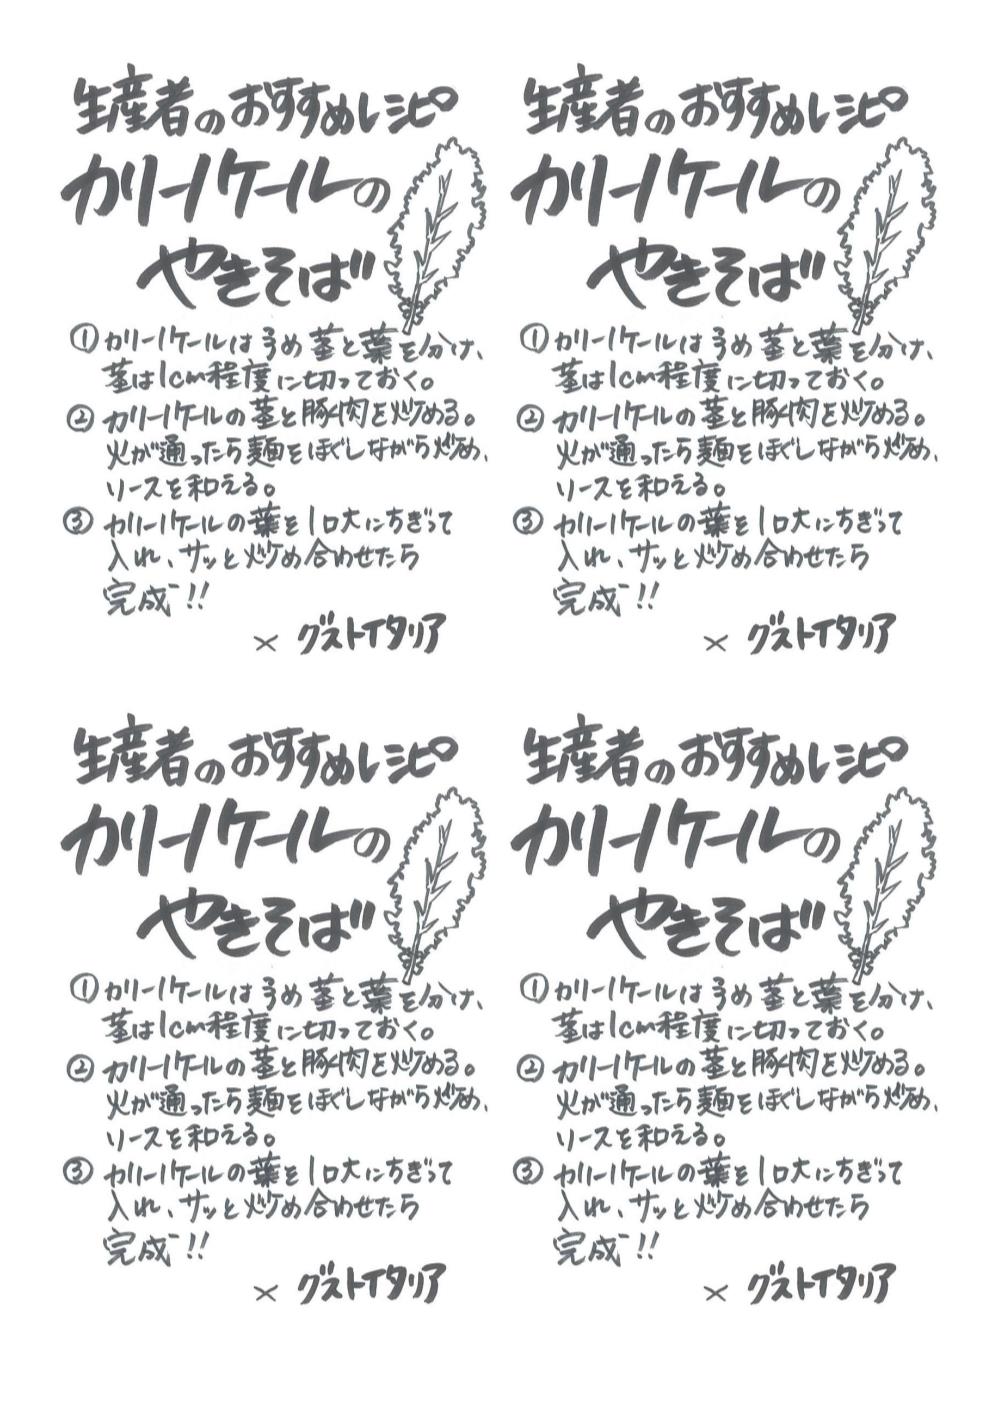 生産者のおすすめレシピ
カリーノケールの
やきそば
① カリーノケールは予め茎と葉を分け、
茎は1cm程度に切っておく。
② カリーノケールの茎と豚肉を炒める。
火が通ったら麺をほぐしながら炒め、
ソースを和える。
③ カリーノケールの葉を1口大にちぎって
入れ、サッと炒め合わせたら
完成!!
× グストイタリア
生産者のおすすめレシピ
カリーノケールの
やきそば
① カリーノケールは予め茎と葉を分け、
茎は1cm程度に切っておく。
② カリーノケールの茎と豚肉を炒める。
火が通ったら麺をほぐしながら炒め、
ソースを和える。
③ カリーノケールの葉を1口大にちぎって
入れ、サッと炒め合わせたら
完成!!
× グストイタリア
生産者のおすすめレシピ
カリーノケールの
やきそば
① カリーノケールは予め茎と葉を分け、
茎は1cm程度に切っておく。
② カリーノケールの茎と豚肉を炒める。
火が通ったら麺をほぐしながら炒め、
ソースを和える。
③ カリーノケールの葉を1口大にちぎって
入れ、サッと炒め合わせたら
完成!!
× グストイタリア
生産者のおすすめレシピ
カリーノケールの
やきそば
① カリーノケールは予め茎と葉を分け、
茎は1cm程度に切っておく。
② カリーノケールの茎と豚肉を炒める。
火が通ったら麺をほぐしながら炒め、
ソースを和える。
③ カリーノケールの葉を1口大にちぎって
入れ、サッと炒め合わせたら
完成!!
× グストイタリア